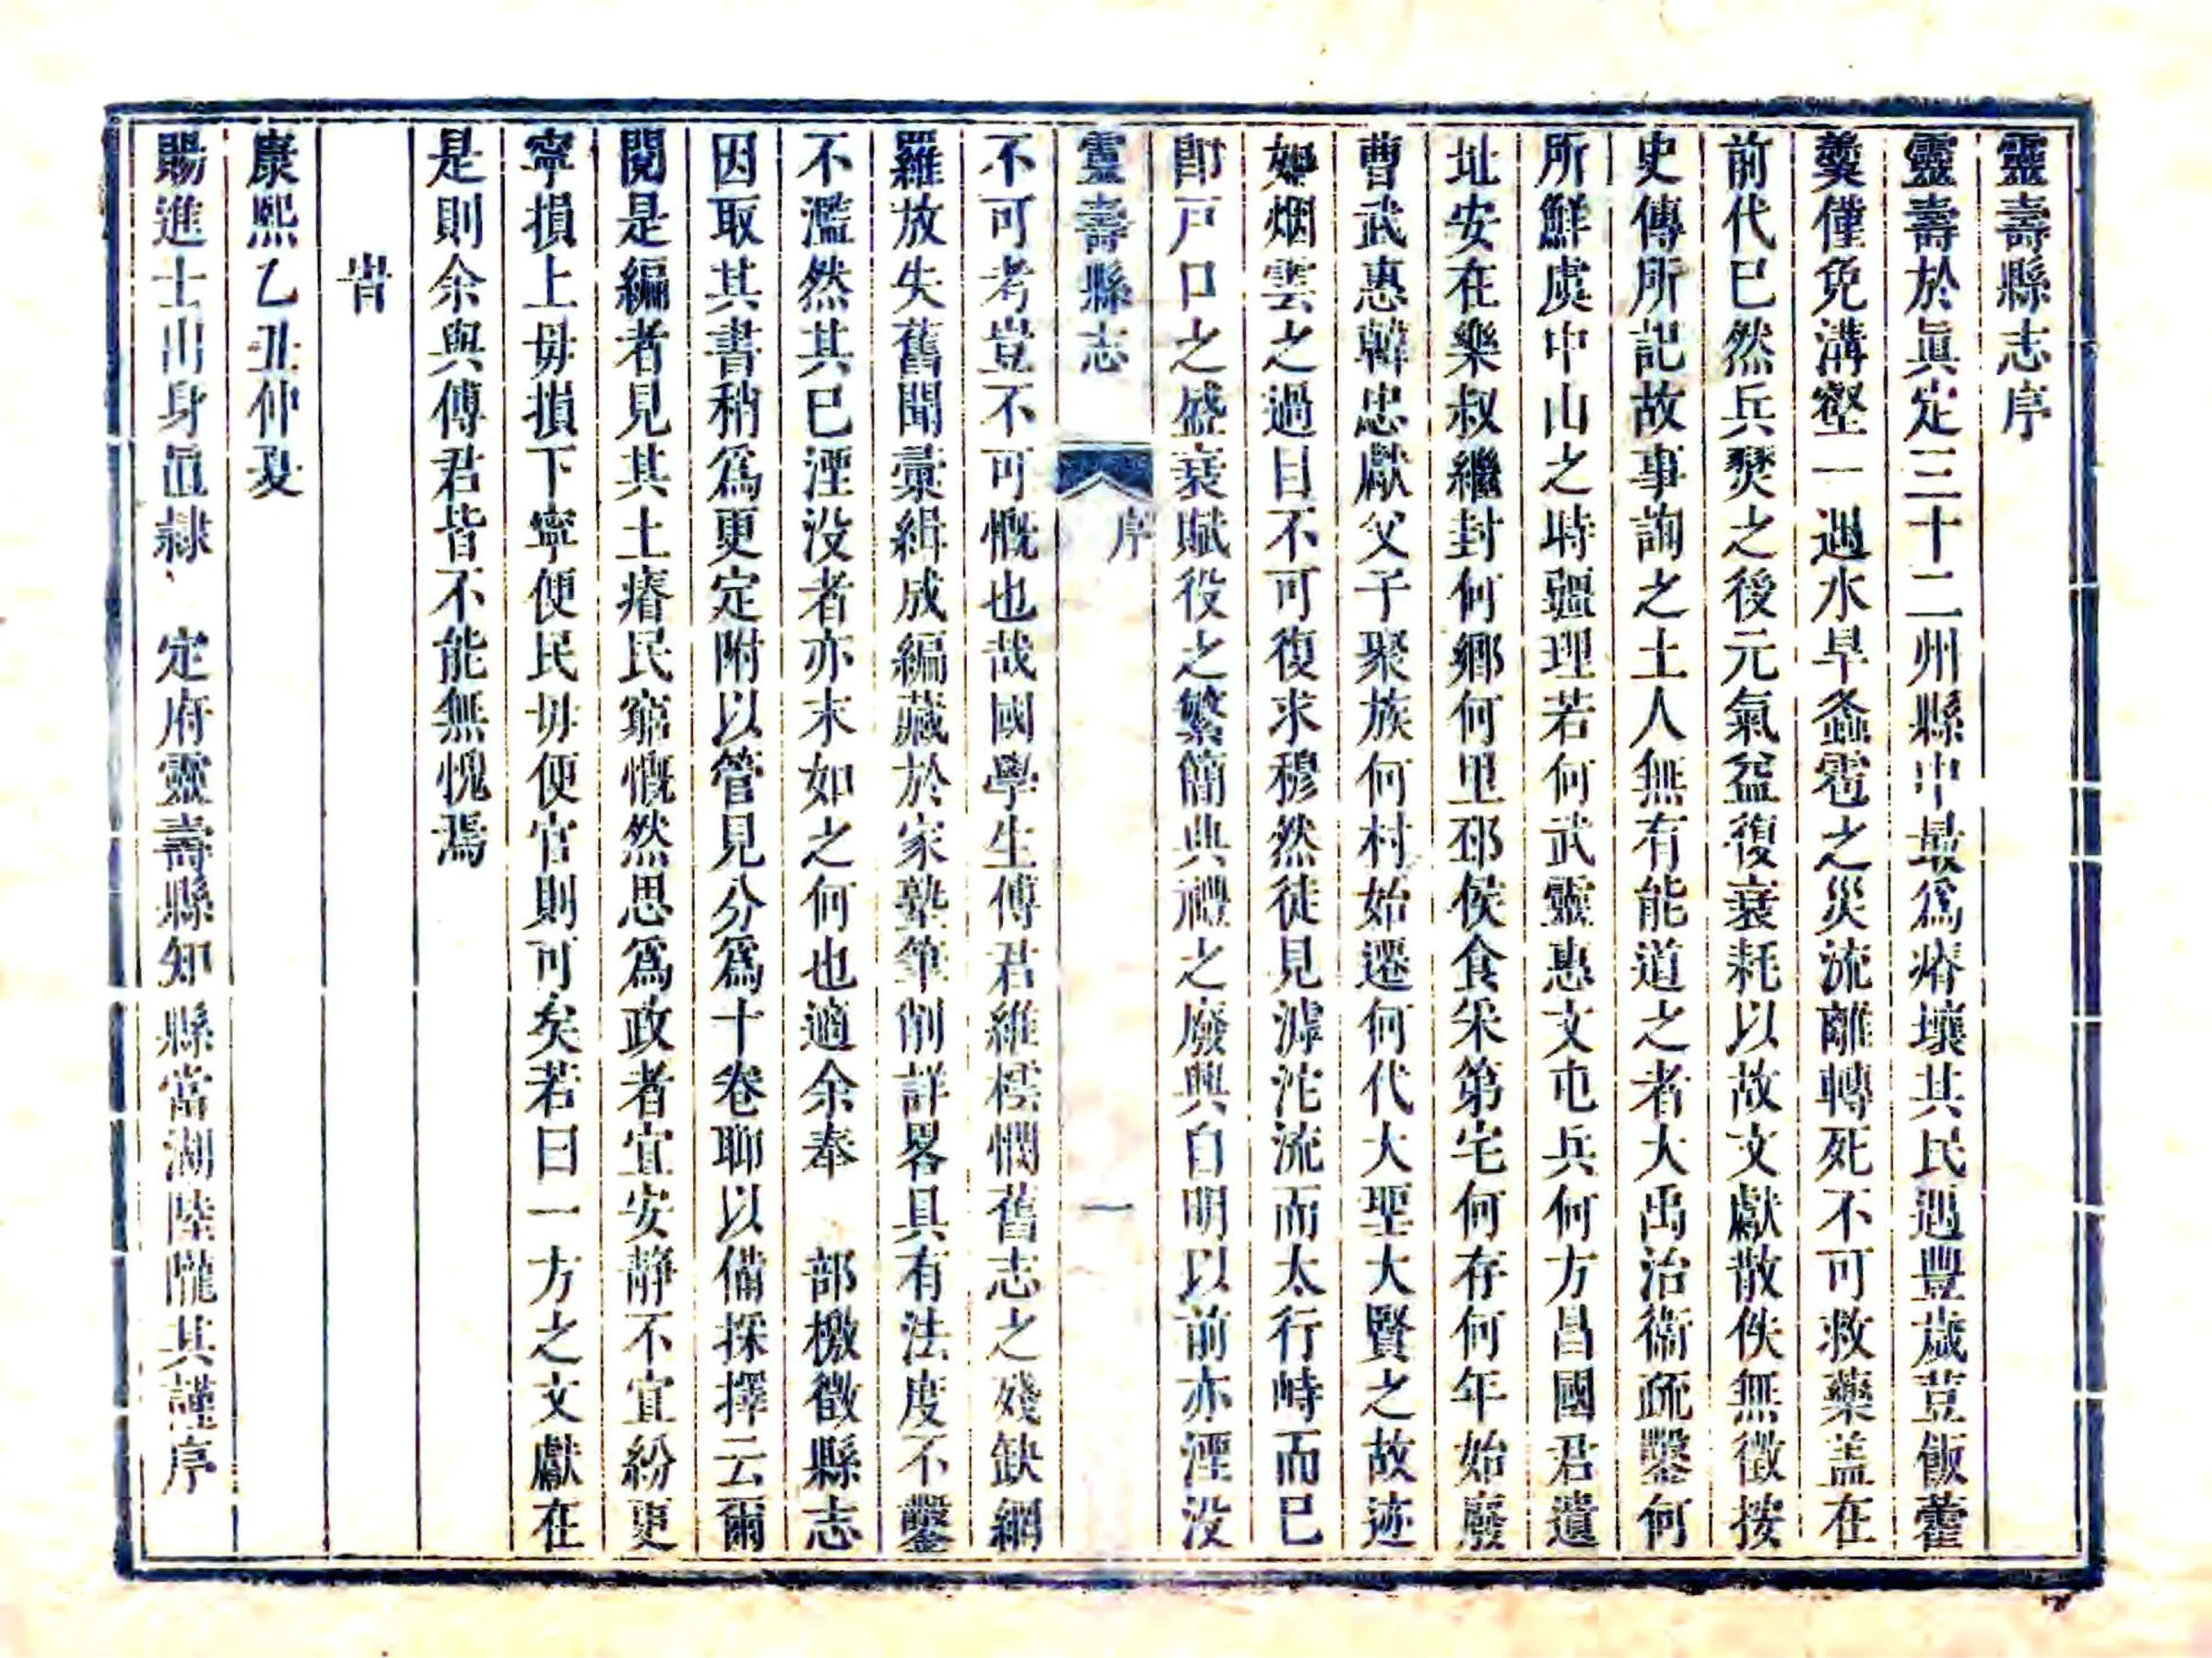 靈壽縣志序
靈壽於眞定三十二州縣中最爲瘠壤其民遇豐歲荳飯藿
羹僅免溝壑一遇水旱螽雹之災流離轉死不可救藥盖在
前代已然兵燹之後元氣益復衰耗以故文獻散佚無徵按
史傳所記故事詢之土人無有能道之者大禹治衞疏鑿何
所鮮虞中山之時疆理若何武靈惠文屯兵何方昌國君遺
址安在樂叔繼封何鄉何里邳侯食采第宅何存何年始廢
曹武惠韓忠獻父子聚族何村始遷何代大聖大賢之故迹
如烟雲之過目不可復求穆然徒見滹沱流而太行峙而已
卽戸口之盛衰賦役之繁簡典禮之廢興自明以前亦湮没
靈壽縣志
序
一
不可考豈不可慨也哉國學生傅君維橒憫舊志之殘缺網
羅放失舊聞彙緝成編藏於家塾筆削詳畧具有法度不鑿
不濫然其已湮没者亦末如之何也適余奉 部檄徵縣志
因取其書稍爲更定附以管見分爲十卷聊以備採擇云爾
閱是編者見其土瘠民窮慨然思爲政者宜安靜不宜紛更
寧損上毋損下寧便民毋便官則可矣若曰一方之文獻在
是則余與傅君皆不能無愧焉
旹
康熙乙丑仲夏
賜進士出身直隸 定府靈壽縣知縣當湖陸隴其謹序